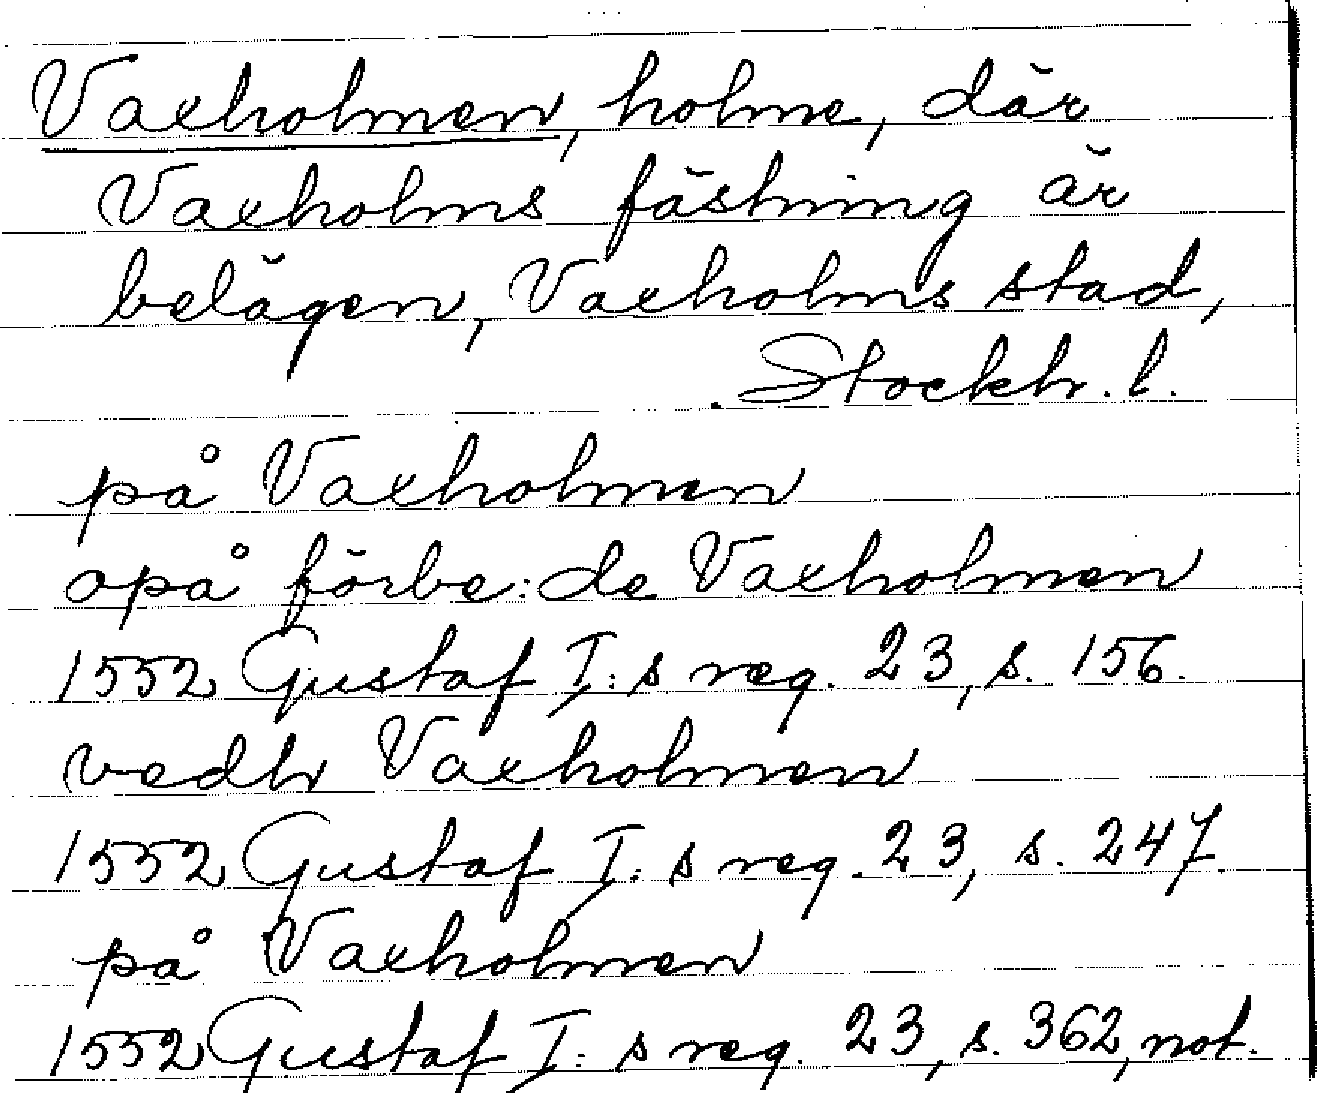 Vaxholmen, holme, där
Vaxholms fästning är
belägen, Vaxholms stad,
Stockh. l.
på Vaxholmen
opå förbe:de Vaxholmen
1552 Gustaf I:s reg. 23, s. 156.
vedh Vaxholmen
1552 Gustaf I:s reg. 23, s. 247.
på Vaxholmen
1552 Gustaf I:s reg. 23, s. 362, not.